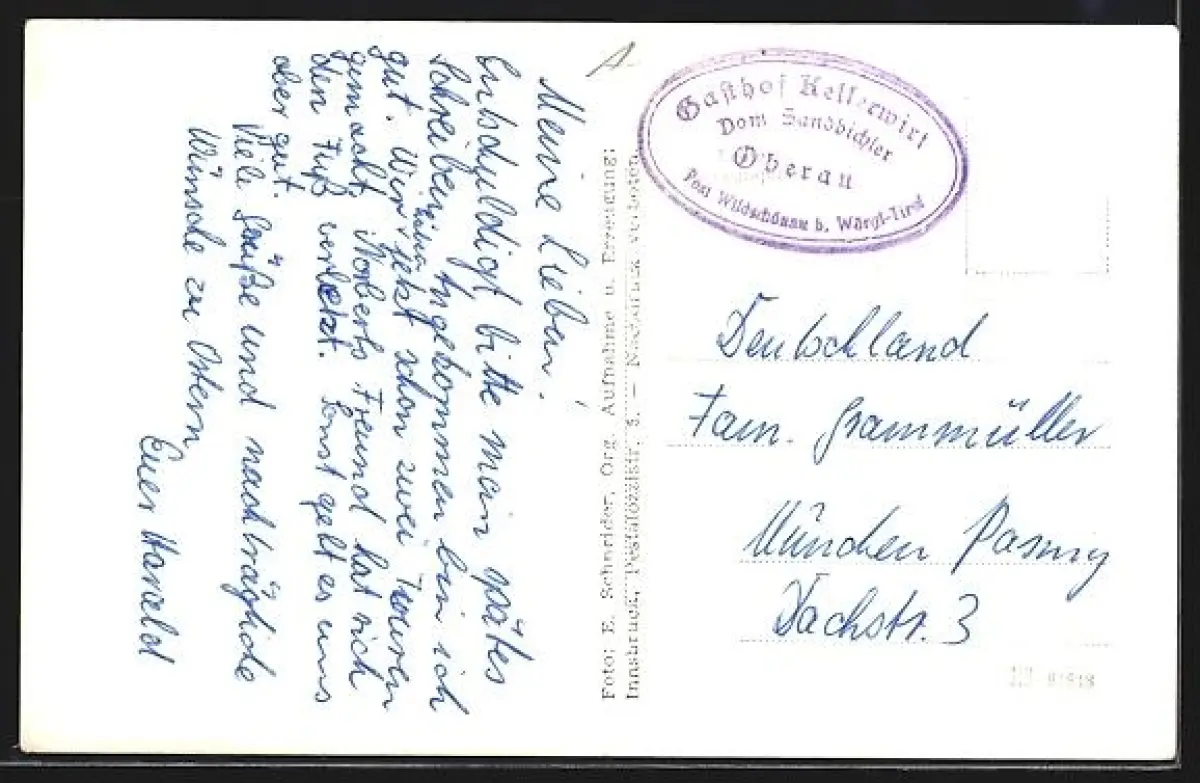 Meine Lieben!
Entschuldigt bitte mein spätes
Schreiben. Angekommen bin ich
gut. Wir haben jetzt schon zwei Touren
gemacht, Norberts Freund hat sich
den Fuß verletzt. Sonst geht es uns
aber gut.
Viele Grüße und nachträgliche
Wünsche zu Ostern
Euer Harald
Foto: E. Schneider, Org. Aufnahme u. Erzeugung:
Innsbruck, Pestalozzistr. 5. — Nachdruck verboten
Gasthof Kellerwirt
Dom Sandbichler
Oberau
Post Wildschönau b. Wörgl-Tirol
Deutschland
Fam. Grammüller
München Pasing
Dachstr. 3